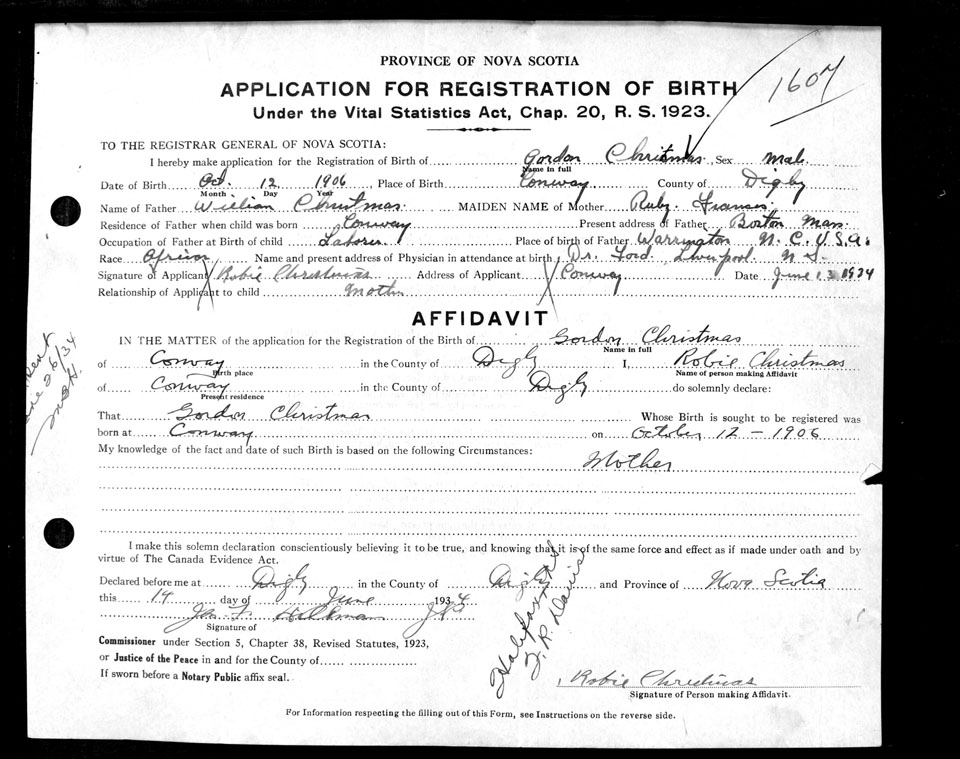 PROVINCE OF NOVA SCOTIA
APPLICATION FOR REGISTRATION OF BIRTH
1607
Under the Vital Statistics Act, Chap. 20, R. S. 1923.
TO THE REGISTRAR GENERAL OF NOVA SCOTIA:
I hereby make application for the Registration of Birth of Gordon Christmas, Sex Male
Name in full
Date of Birth Oct. 12 1906, Place of Birth Conway County of Digby
Month Day Year
Name of Father William Christmas MAIDEN NAME of Mother Ruby Francis
Residence of Father when child was born Conway Present address of Father Boston Mass
Occupation of Father at Birth of child Laborer Place of birth of Father Warrington N. C. U.S.A.
Race African Name and present address of Physician in attendance at birth Dr. Ford, Liverpool N S
Signature of Applicant Robie Christmas Address of Applicant Conway Date June 13 1934
Relationship of Applicant to child Mother
AFFIDAVIT
IN THE MATTER of the application for the Registration of the Birth of Gordon Christmas
Name in full
of Conway in the County of Digby I, Robie Christmas
Birth place Name of person making Affidavit
of Conway in the County of Digby do solemnly declare:
Present residence
That Gordon Christmas Whose Birth is sought to be registered was
born at Conway on October 12 - 1906
My knowledge of the fact and date of such Birth is based on the following Circumstances:
Mother
I make this solemn declaration conscientiously believing it to be true, and knowing that it is of the same force and effect as if made under oath and by
virtue of The Canada Evidence Act.
Declared before me at Digby in the County of Digby and Province of Nova Scotia
this 14 day of June 1934
Signature of
Halifax
Davis
Commissioner under Section 5, Chapter 38, Revised Statutes, 1923,
or Justice of the Peace in and for the County of
If sworn before a Notary Public affix seal.
Robie Christmas
Signature of Person making Affidavit.
For Information respecting the filling out of this Form, see Instructions on the reverse side.
26/34